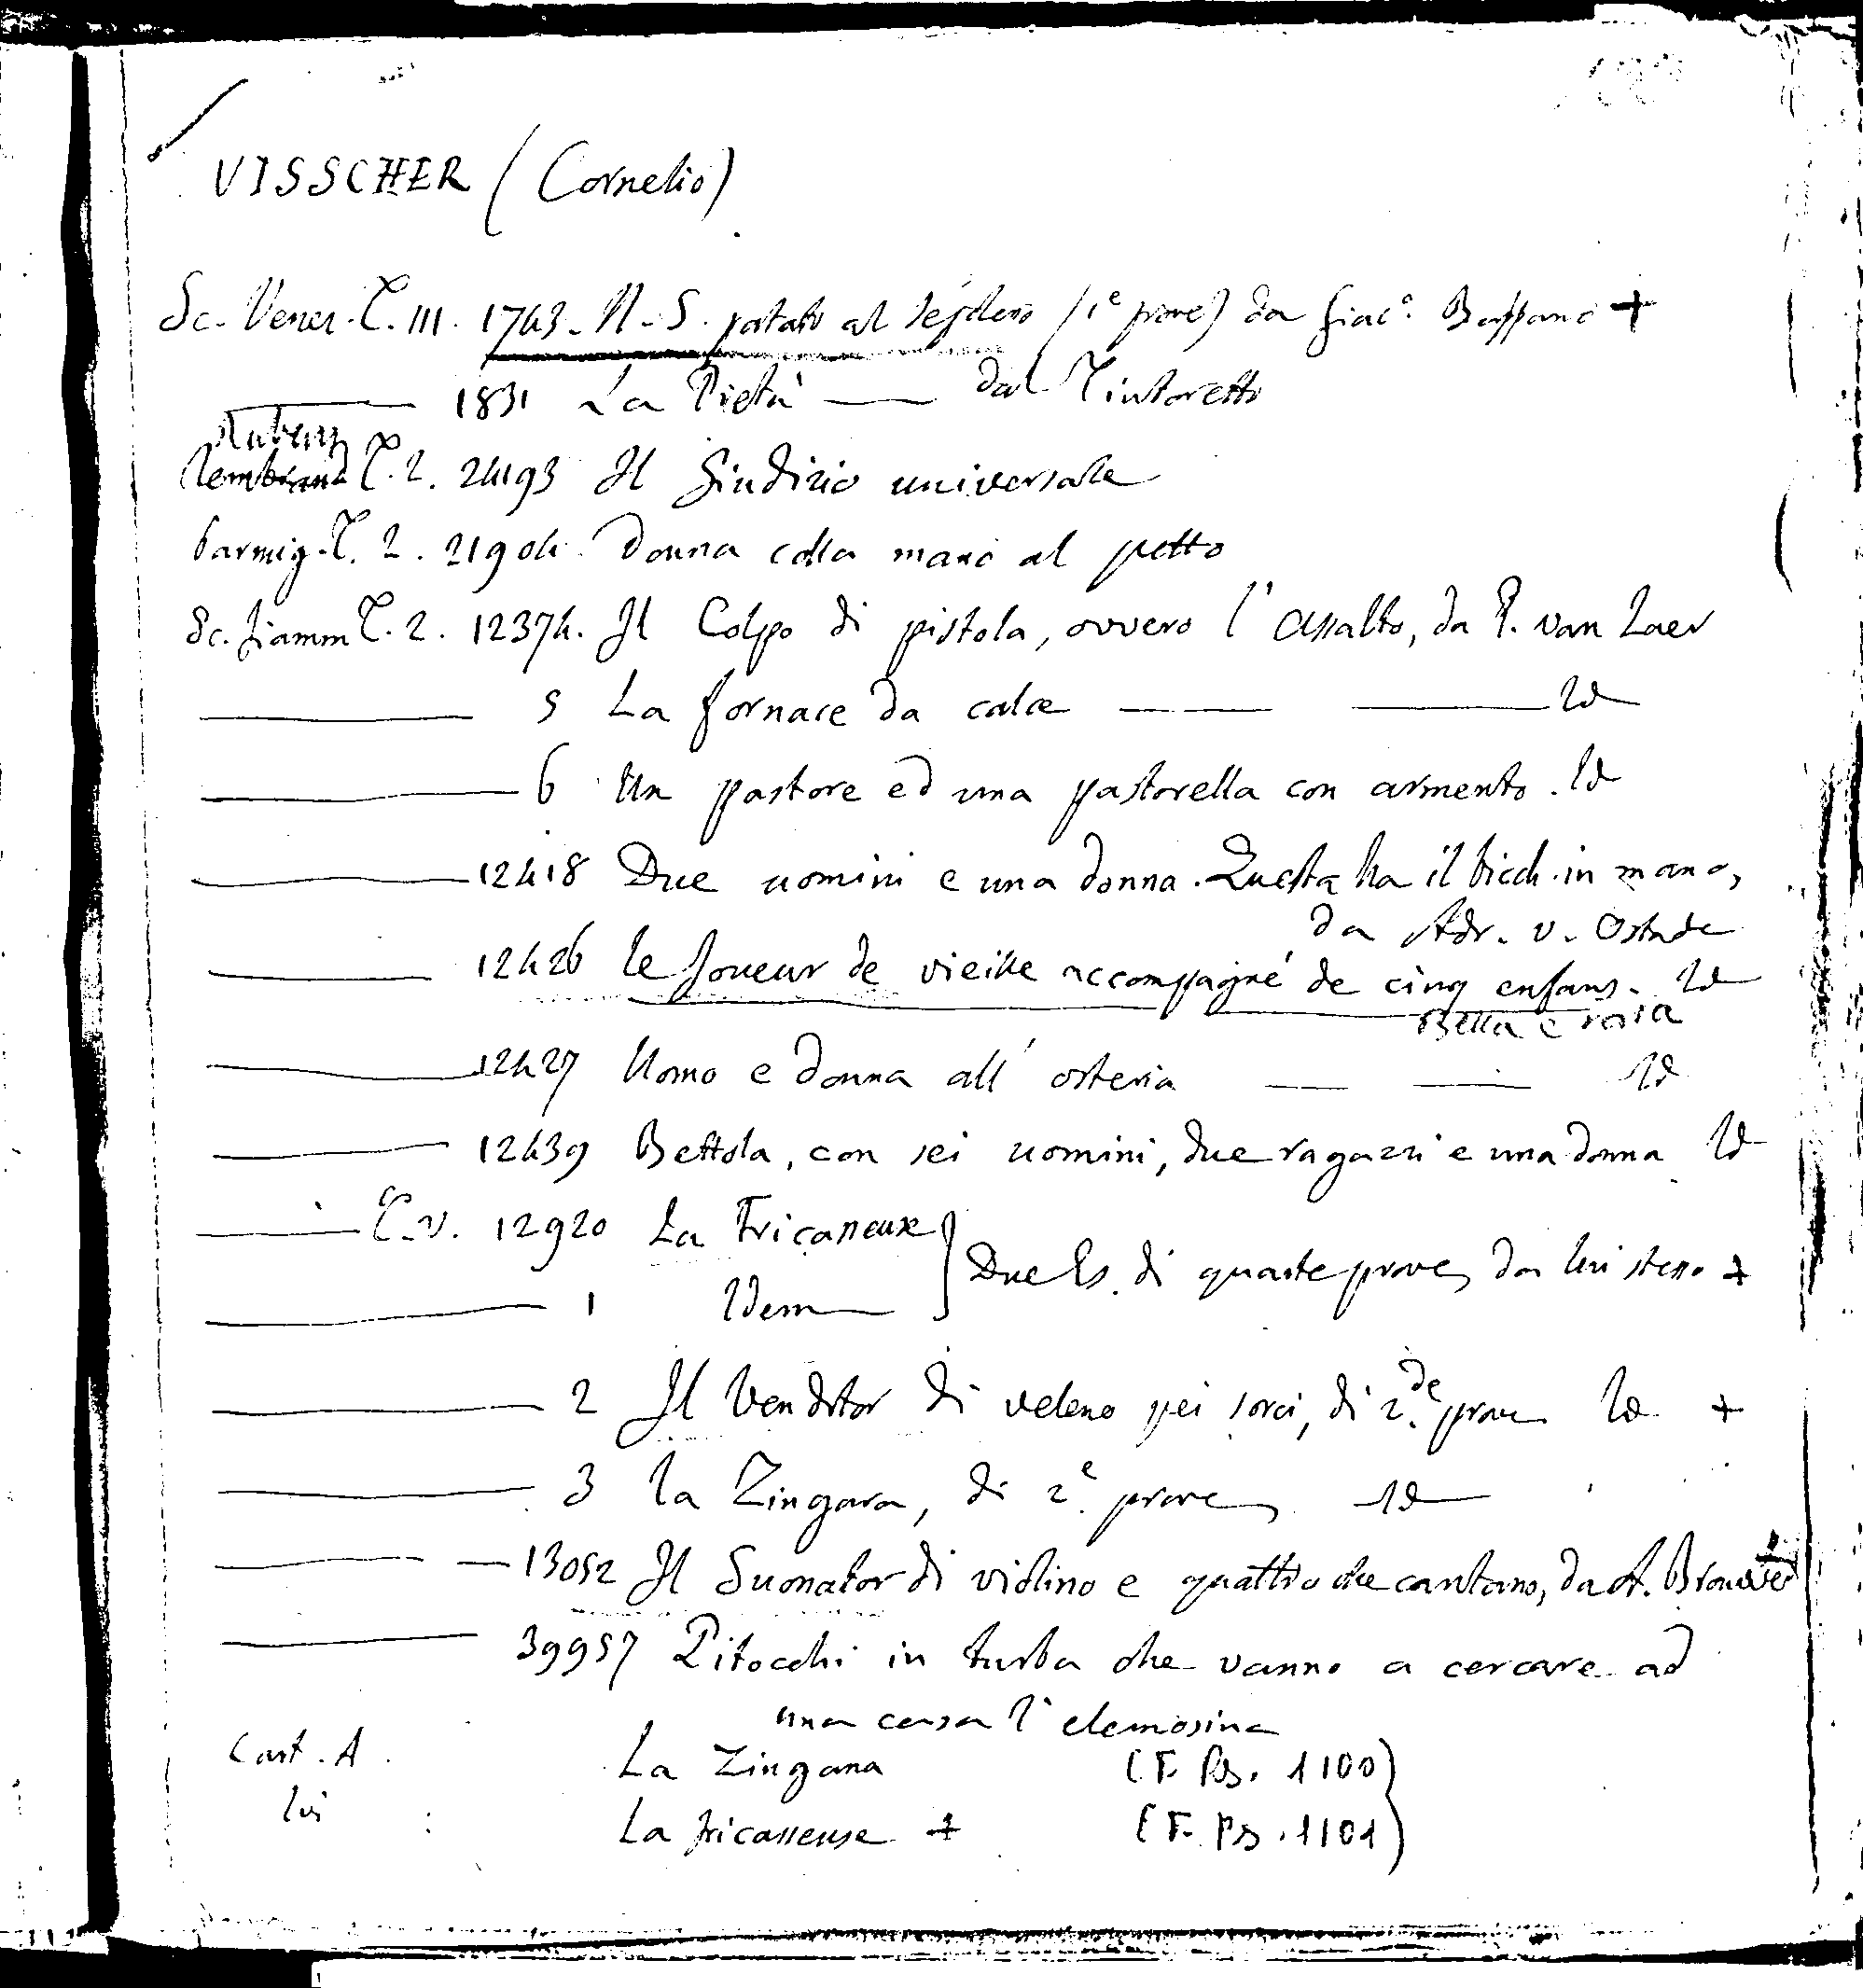 VISSCHER (Cornelio)
Sc. Venez. T. III. 1743. N. S. portato al sepolcro (1e prove) da Giac.o Bassano +
1831 La Pietà — dal Tintoretto
Rubens
Rembrand T. 2. 24193 Il Giudizio universale
Parmig. T. 2. 21904. Donna colla mano al petto
Sc. fiamm T. 2. 12374. Il Colpo di pistola, ovvero l'assalto, da P. van Laer
5 La fornace da calce — — Id
6 Un pastore ed una pastorella con armento. Id
12418 Due uomini e una donna. Questa ha il bicch. in mano,
da Adr. v. Ostade
12426 Le Joueur de vieille accompagné de cinq enfans. Id
Bella e rara
12427 Uomo e donna all' osteria — — Id
12439 Bettola, con sei uomini, due ragazzi e una donna Id
T. V. 12920 La Fricasseuse } Due Es. di quarte prove, da lui stesso +
1 Idem
2 Il Venditor di veleno pei sorci, di 2.de prove Id +
3 La Zingara, di 2.e prove Id
13052 Il Suonator di violino e quattro che cantano, da A. Brouwer +
39957 Pitocchi in turba che vanno a cercare ad
una casa l'elemosina
Cart. A. La Zingana (F. Ps. 1100)
Ivi La fricasseuse + (F. Ps. 1101)